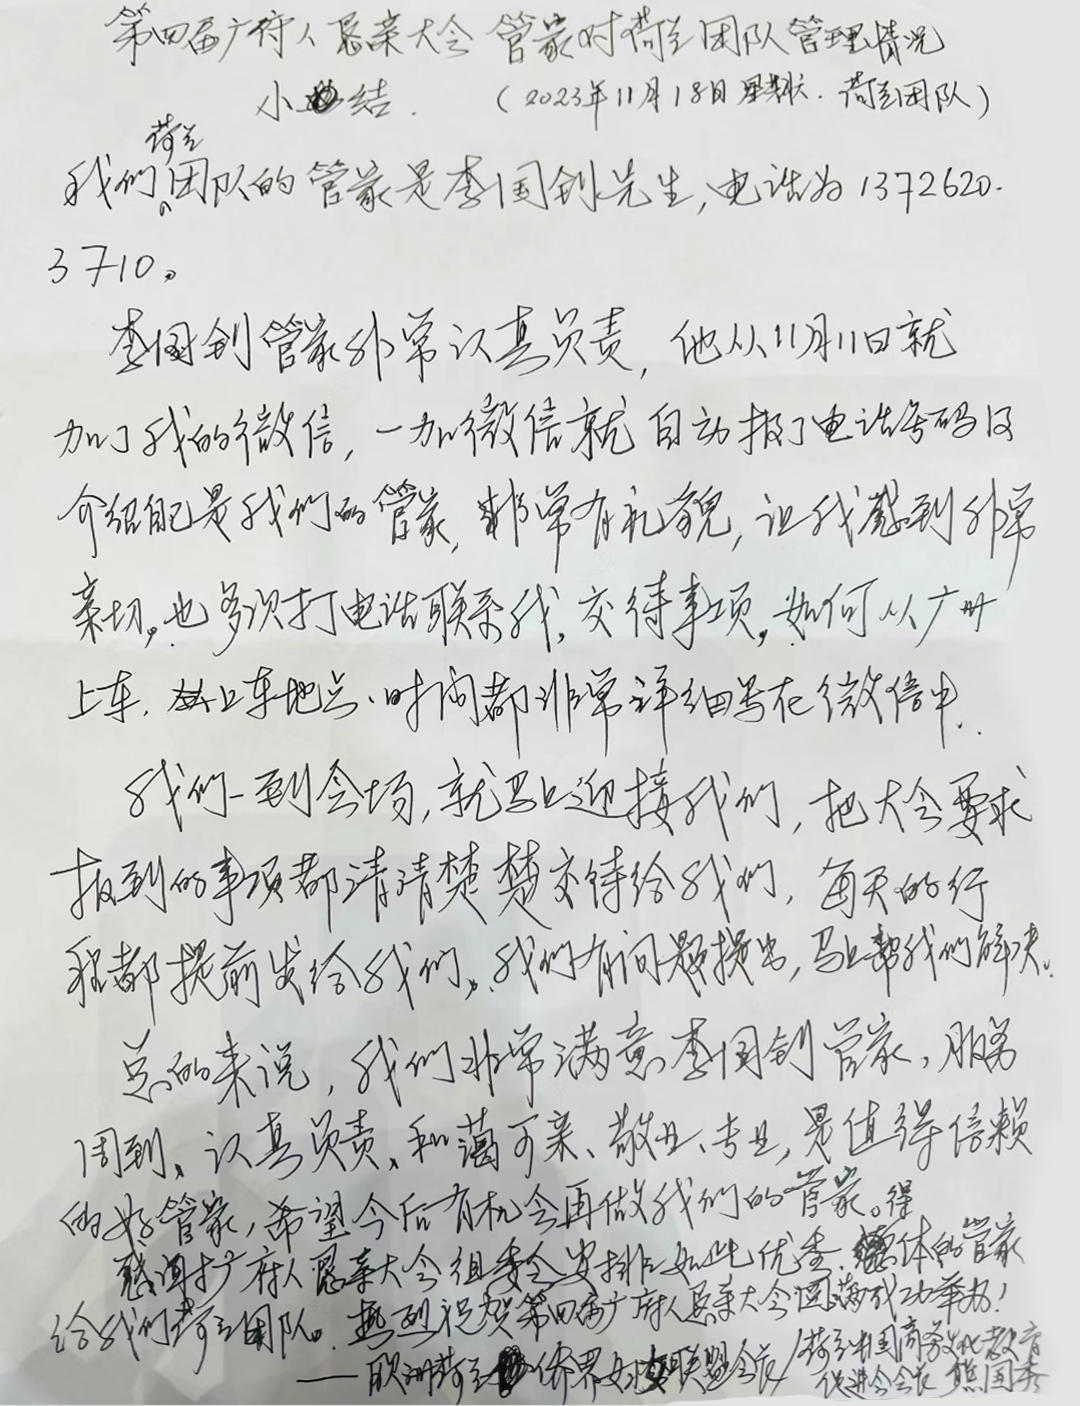 第四届广府人恳亲大会 管家对荷兰团队管理情况
小结. (2023年11月18日 星期六. 荷兰团队)
荷兰
我们团队的管家是李国钊先生,电话为1372620.
3710。
李国钊管家非常认真负责,他从11月11日就
加了我的微信,一加微信就自动报了电话号码及
介绍自已是我们的管家,非常有礼貌,让我感到非常
亲切。也多次打电话联系我,交待事项,如何从广州
上车,上车地点、时间都非常详细写在微信中.
我们一到会场,就马上迎接我们,把大会要求
报到的事项都清清楚楚交待给我们,每天的行
程都提前发给我们,我们有问题提出,马上帮我们解决。
总的来说,我们非常满意李国钊管家,服务
周到、认真负责、和蔼可亲、敬业、专业,是值得信赖
的好管家,希望今后有机会再做我们的管家。
广府人恳亲大会组委会安排如此优秀得体的管家
给我们荷兰团队。热烈祝贺第四届广府人恳亲大会圆满成功举办!
——欧洲荷兰侨界妇女联盟会长/荷兰中国商务文化教育
促进会会长 熊国秀